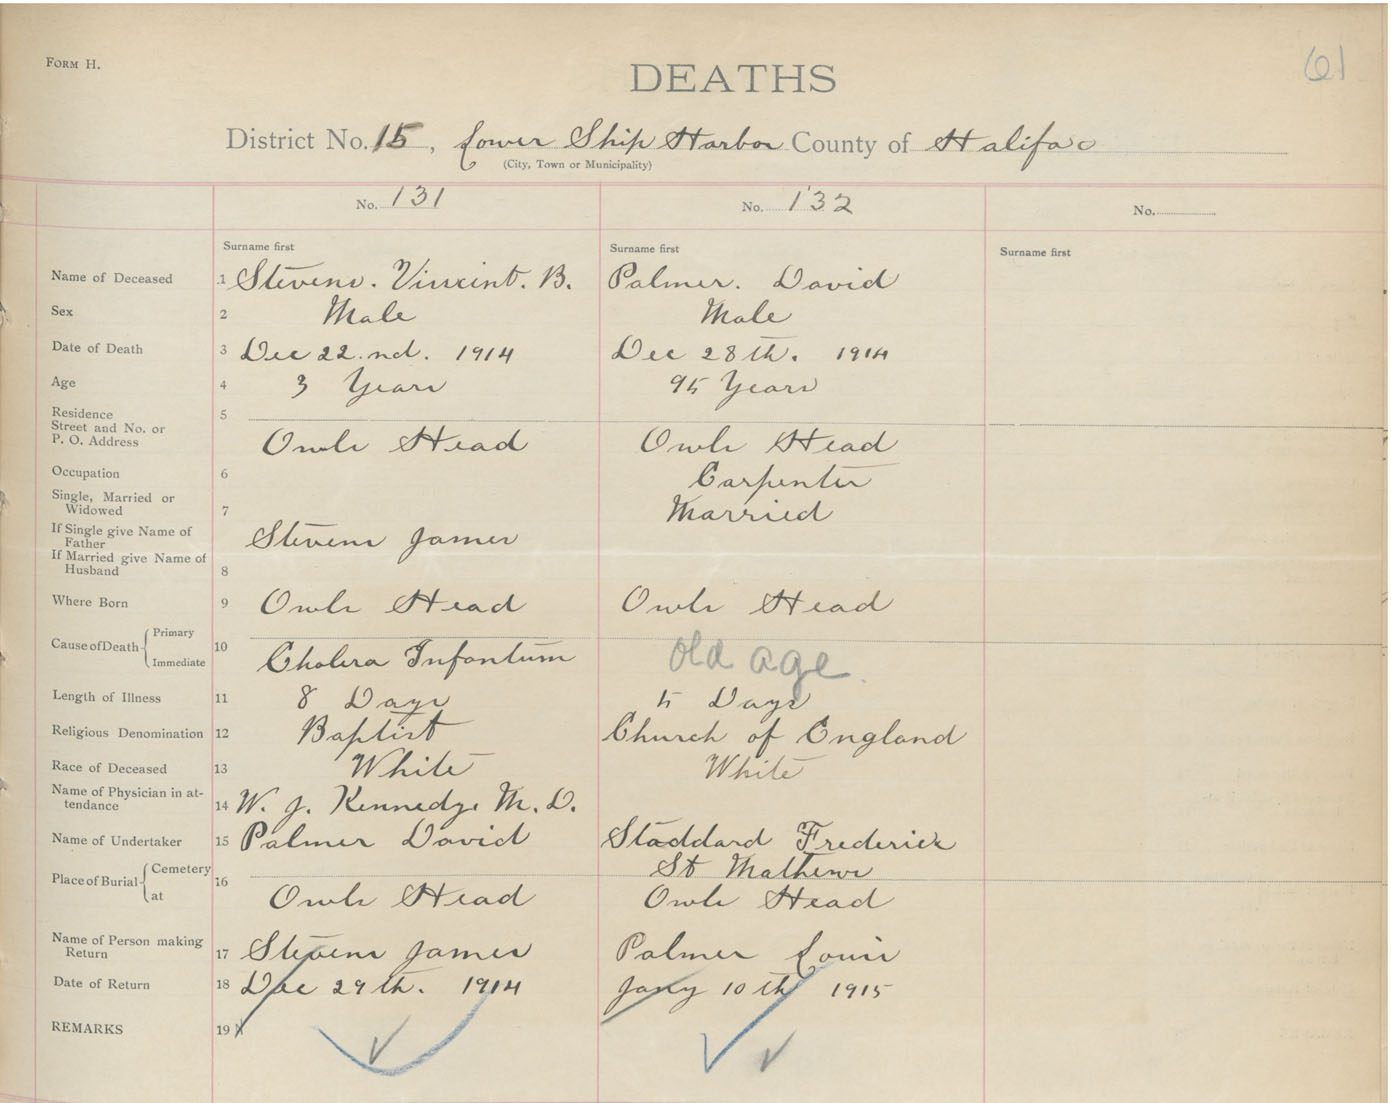 FORM H.
61
DEATHS
District No. 15, Lower Ship Harbor County of Halifax
(City, Town or Municipality)
No. 131 No. 132 No.
Surname first Surname first Surname first
Name of Deceased 1 Stevens. Vincint. B. Palmer. David
Sex 2 Male Male
Date of Death 3 Dec 22.nd. 1914 Dec 28th. 1914
Age 4 3 Years 95 Years
Residence 5
Street and No. or
P. O. Address Owls Head Owls Head
Occupation 6 Carpenter
Single, Married or
Widowed 7 Married
If Single give Name of
Father Stevens James
If Married give Name of
Husband 8
Where Born 9 Owls Head Owls Head
Cause of Death Primary 10
Immediate Cholera Infantum old age
Length of Illness 11 8 Days 5 Days
Religious Denomination 12 Baptist Church of England
Race of Deceased 13 White White
Name of Physician in at-
tendance 14 W. J. Kennedy. M. D.
Name of Undertaker 15 Palmer David Stoddard Frederick
Place of Burial Cemetery 16 St Mathews
at Owls Head Owls Head
Name of Person making
Return 17 Stevens James Palmer Louis
Date of Return 18 Dec 29th. 1914 Jany 10th 1915
REMARKS 19